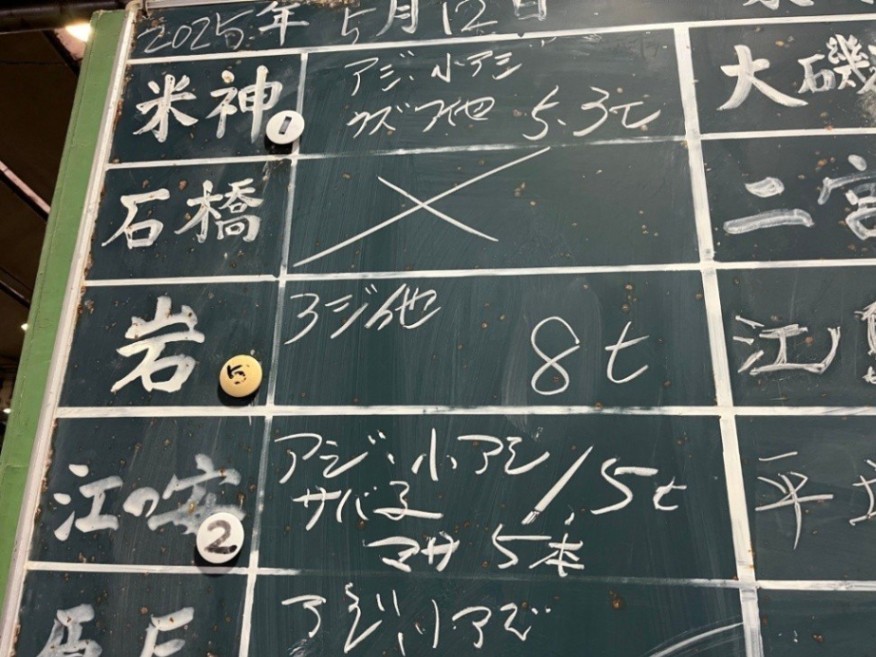 2025年 5月12日
米神 1
アジ、小アジ
カズフ他 5.3t
大磯
石橋
二宮
岩 5
アジ他
8t
江
江の安 2
アジ、小アジ
サバ子 15t
マサ 5本
平
アジ、小アジ